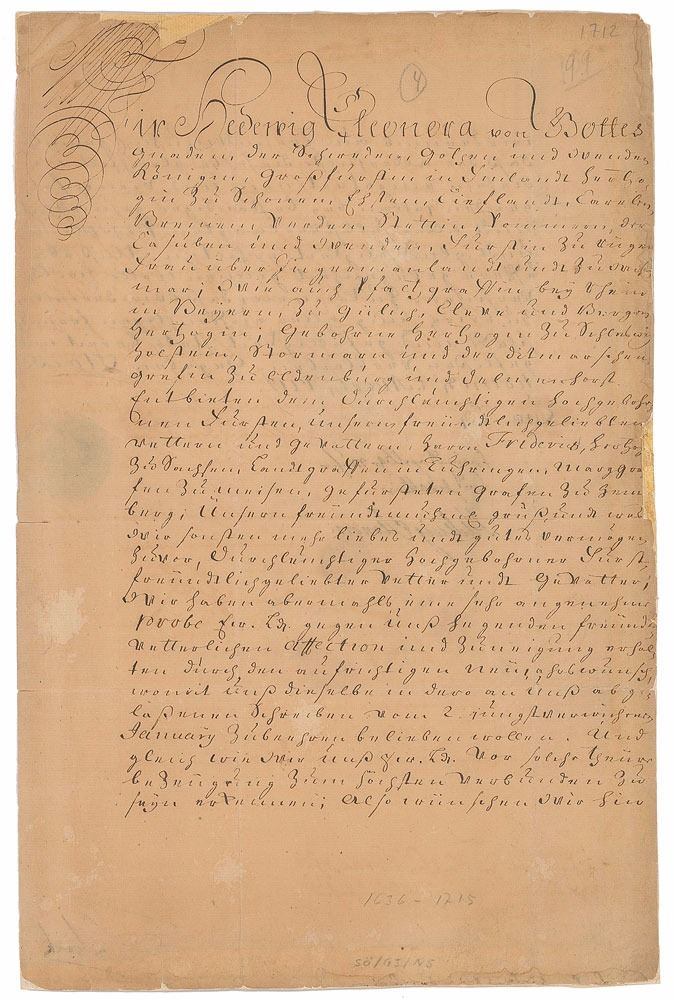 1712
99
4
Wir Hedewig Eleonora von Gottes
Gnaden, der Schweden, Gothen und Wenden
Königin, Großfürstin in Finlandt, Hertzo-
gin zu Schonen, Ehsten, Liefflandt, Carelen,
Brehmen, Verden, Stettin, Pommern, der
Casuben und Wenden, Fürstin zu Rügen
Frau über Ingermanlandt undt zu Wiß-
mar; Wie auch Pfaltzgräffin bey Rhein
in Beyern, zu Gülich, Cleve und Bergen
Hertzogin; Gebohrne Hertzogin zu Schleswig
Holstein, Stormarn und der Ditmarschen,
Gräfin zu Oldenburg und Delmenhorst.
Entbieten dem Durchleüchtigen Hochgebohr-
nen Fürsten, unsern freündtlichgeliebten
Vettern und Gevattern, Herrn Friderich, Hertzog
zu Sachsen, Landtgraffen in Thüringen, Marggra-
fen zu Meisen, Gefürsteten Grafen zu Hen-
berg; Unsern freündtmuhml. gruß undt was
Wir sonsten mehr liebes undt gutes vermögen
zuvor, Durchleüchtiger Hochgebohrner Fürst,
freündtlichgeliebter Vetter undt Gevatter;
Wir haben abermahls eine sehr angenehme
probe Ew. Ld. gegen Unß hegenden freünd-
vetterlichen affection und Zuneigung erhal-
ten durch den aufrichtigen Neüjahrswunsch,
womit Unß dieselbe in dero an Unß abge-
laßenen Schreiben vom 2. jüngstverwichenen
January zubeehren belieben wollen. Und
gleich wie Wir Unß Ew. Ld. vor solche theure
bezeügung zum höchsten verbunden zu
seyn erkennen; Also wünschen Wir hin
1636 - 1715